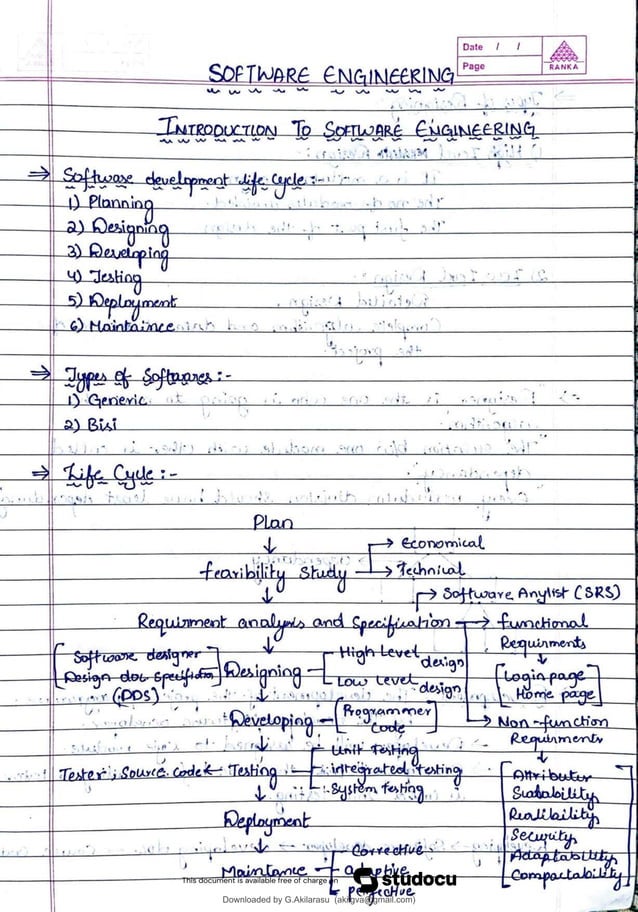 Date / /
Page
RANKA
SOFTWARE ENGINEERING
INTRODUCTION TO SOFTWARE ENGINEERING
⇒ Software development life Cycle :-
1) Planning
2) Designing
3) Developing
4) Testing
5) Deployment
6) Maintaince
⇒ Types of Softwares :-
1) Generic
2) Bisi
⇒ Life Cycle :-
Plan
↓
feasibility Study → Economical
→ Technical
↓
→ Software Anylist (SRS)
Requirment analysis and Specification → functional
Requirments
↓
[Login page
Home page]
→ Non-function
Requirments
↓
[Attributes
Scalability
Realibility
Security
Adaptability
Compactability]
↓
[Software designer
Design doc specification]
(DDS)
Designing
High Level design
Low Level design
↓
Developing - [Programmer
Code]
↓
Tester, Source code ← Testing
Unit Testing
integrated testing
System testing
↓
Deployment
↓
Maintance
Corrective
adaptive
perfective
This document is available free of charge on
studocu
Downloaded by G.Akilarasu (akilgva@gmail.com)